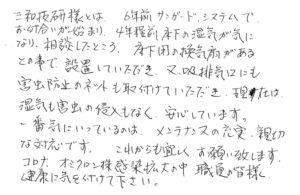 三和技研様とは、6年前サンガードシステムで
お付合いが始まり、4年程前床下の湿気が気に
なり、相談したところ、床下用の換気扇がある
との事で設置していただき、又、吸排気口にも
害虫防止のネットも取付けていただき、現在は、
湿気も害虫の侵入もなく、安心しています。
一番気にいっているのは、メンテナンスの充実、親切
な対応です。これからも宜しくお願い致します。
コロナ オミクロン株感染拡大の中 職員の皆様、
健康に気を付けて下さい。